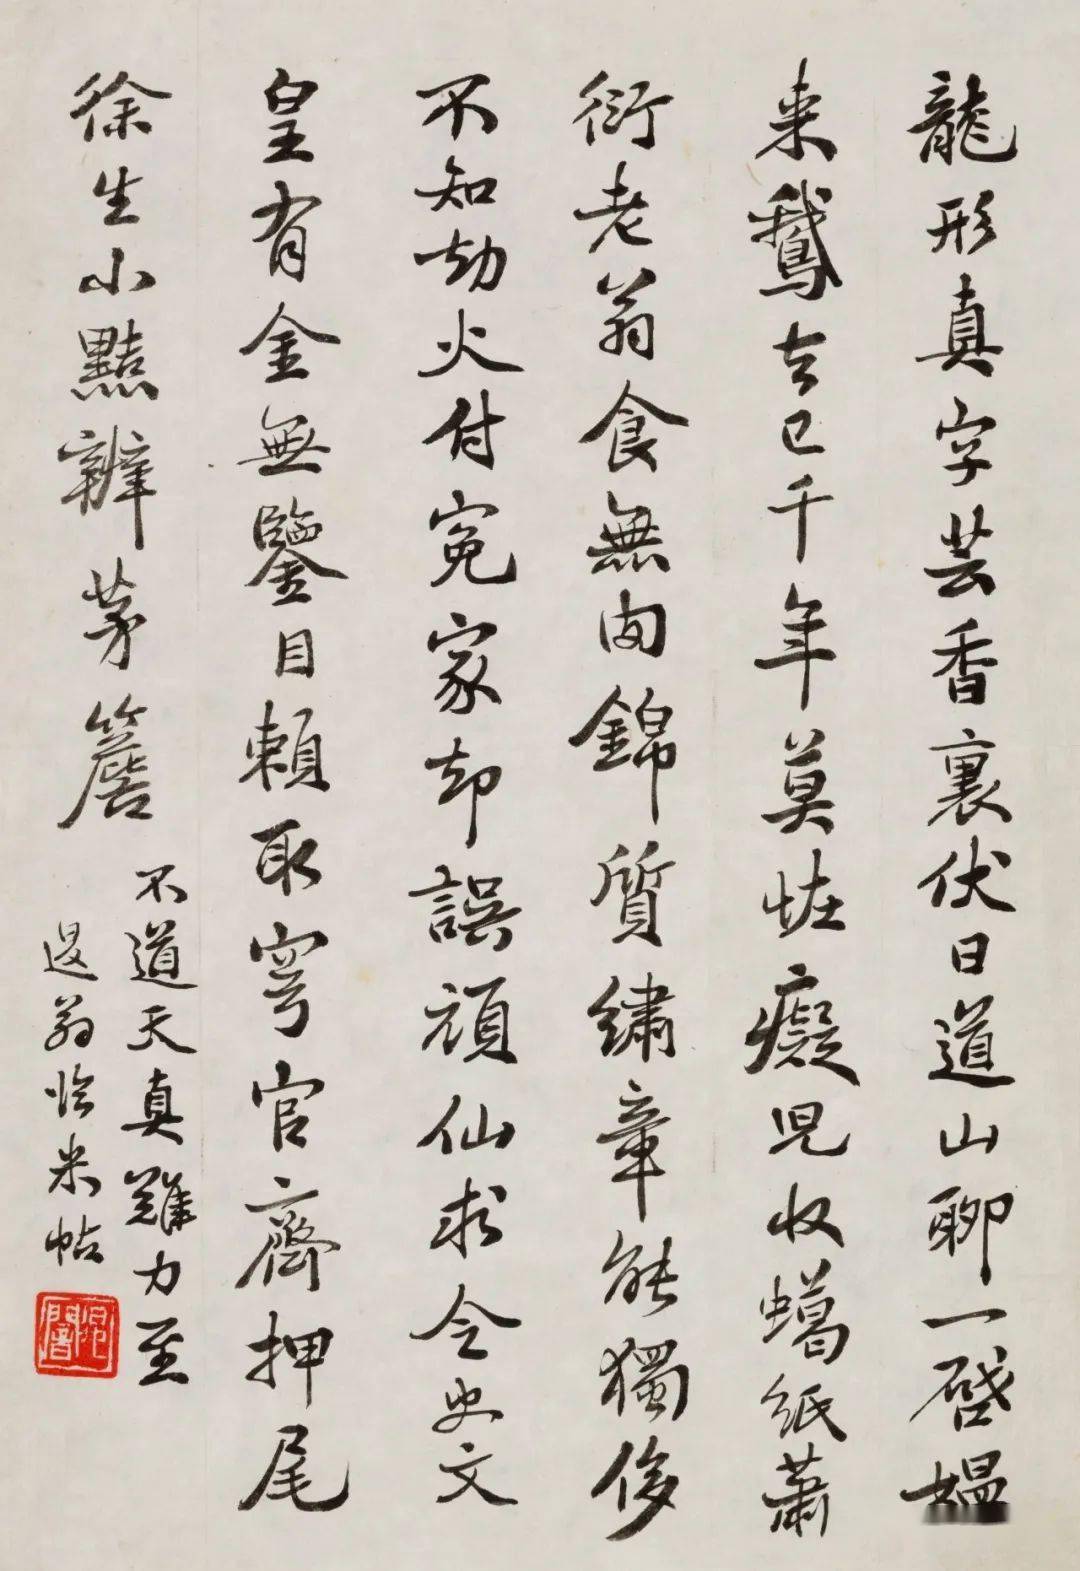 龍形真字芸香裏伏日道山聊一啓媪
来鵞去已千年莫恠癡児收蠟紙蕭
衍老翁食無肉錦質繡章能獨侈
不知劫火付冤家却誤頑仙求令史文
皇有金無鑒目賴取穹官齊押尾
徐生小黠辨茅簷
不道天真難力至
退翁临米帖